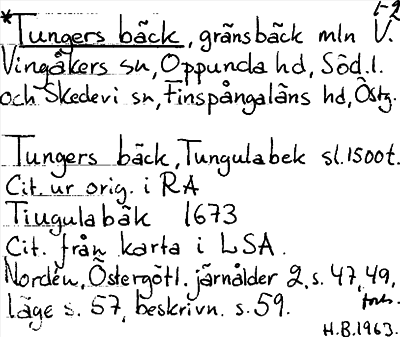 1-2
*Tungers bäck, gränsbäck mln V.
Vingåkers sn, Oppunda hd, Söd.l.
och Skedevi sn, Finspångaläns hd, Östg.
Tungers bäck, Tungulabek sl.1500t.
Cit. ur orig. i RA
Tiugulabäk 1673
Cit. från karta i LSA.
Nordén, Östergötl. järnålder 2, s. 47, 49,
forts.
läge s. 57, beskrivn. s. 59.
H.B.1963.